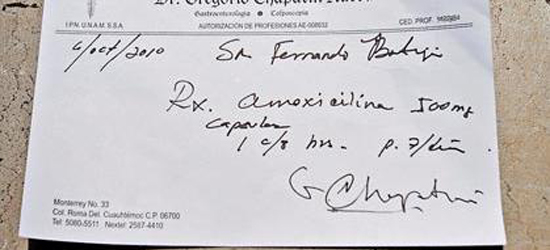 Dr. Gregorio Chapa
Gastroenterología • Colposcopia
I.P.N. U.N.A.M. S.S.A.
AUTORIZACIÓN DE PROFESIONES AE-008632
CED. PROF.
4/oct/2010
Sr Fernando
Rx. amoxicilina 500mg
Capsulas
1 c/8 hrs. p. 7/dias.
Monterrey No. 33
Col. Roma Del. Cuauhtémoc C.P. 06700
Tel: 5080-5511 Nextel: 2587-4410